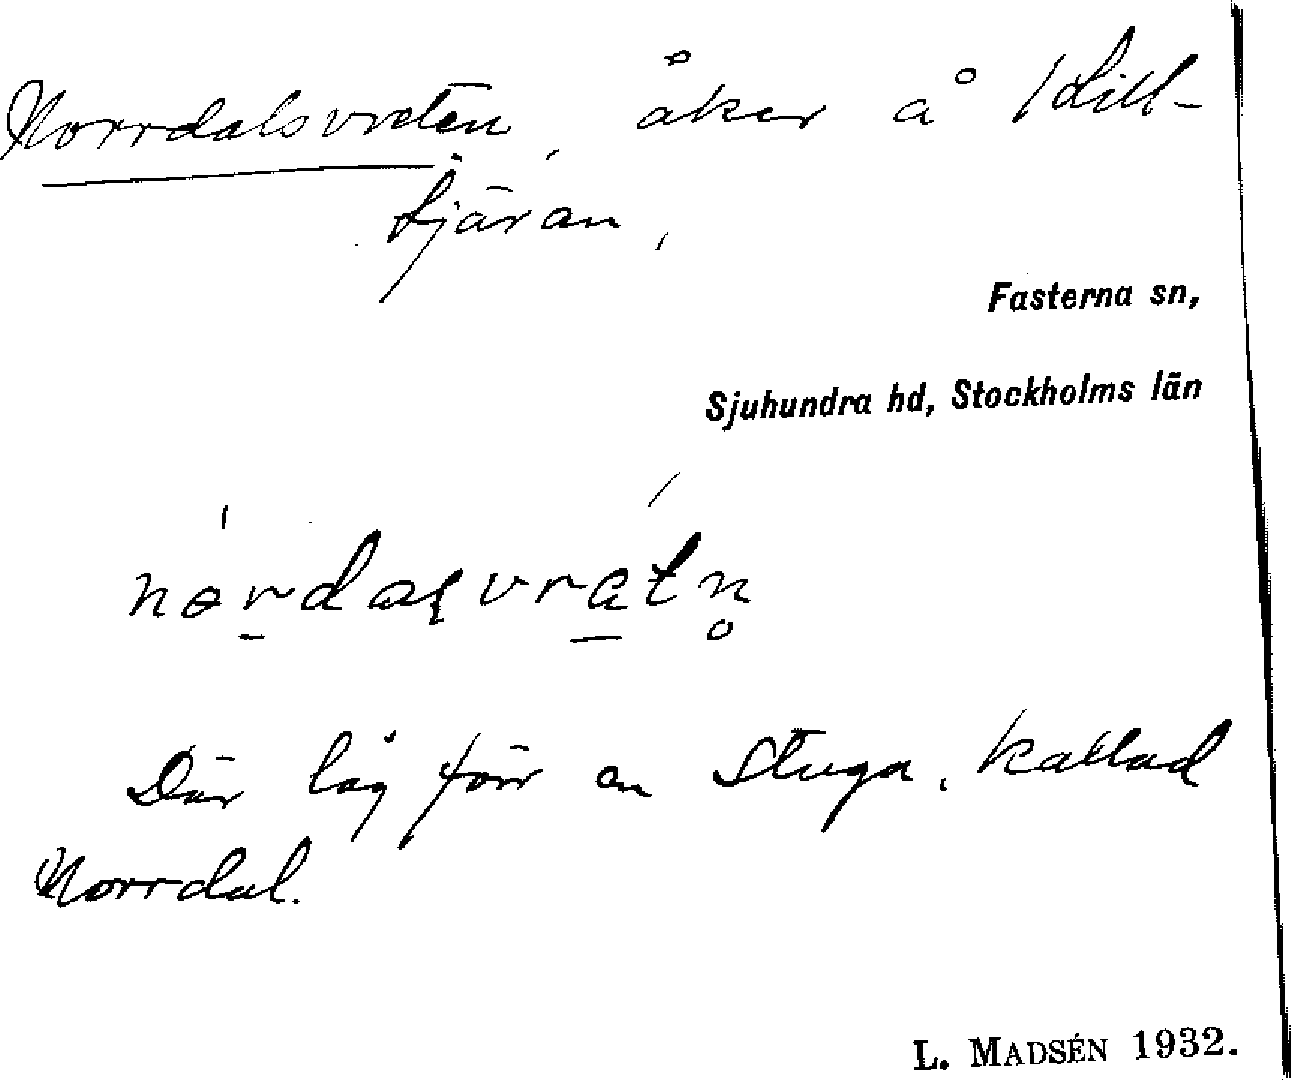 Norrdalsvreten, åker å Lill-
tjäran,
Fasterna sn,
Sjuhundra hd, Stockholms län
Där låg förr en stuga, kallad
Norrdal.
L. MADSÉN 1932.